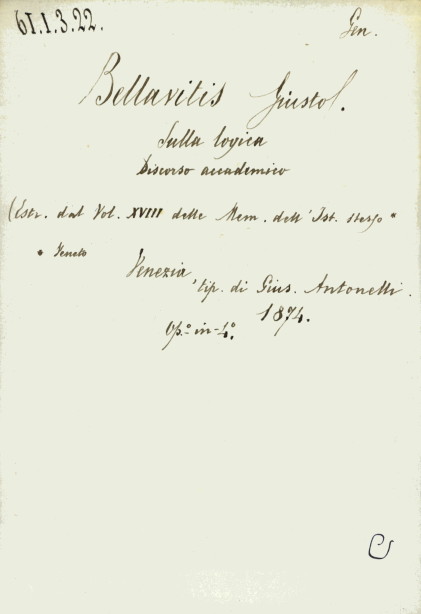 61.1.3.22.
Gen.
Bellavitis Giusto.
Sulla logica
Discorso accademico
(Estr. dal Vol. XVIII delle Mem. dell' Ist. stesso *
* Veneto
Venezia, tip. di Gius. Antonelli.
1874.
Op.º in-4º.